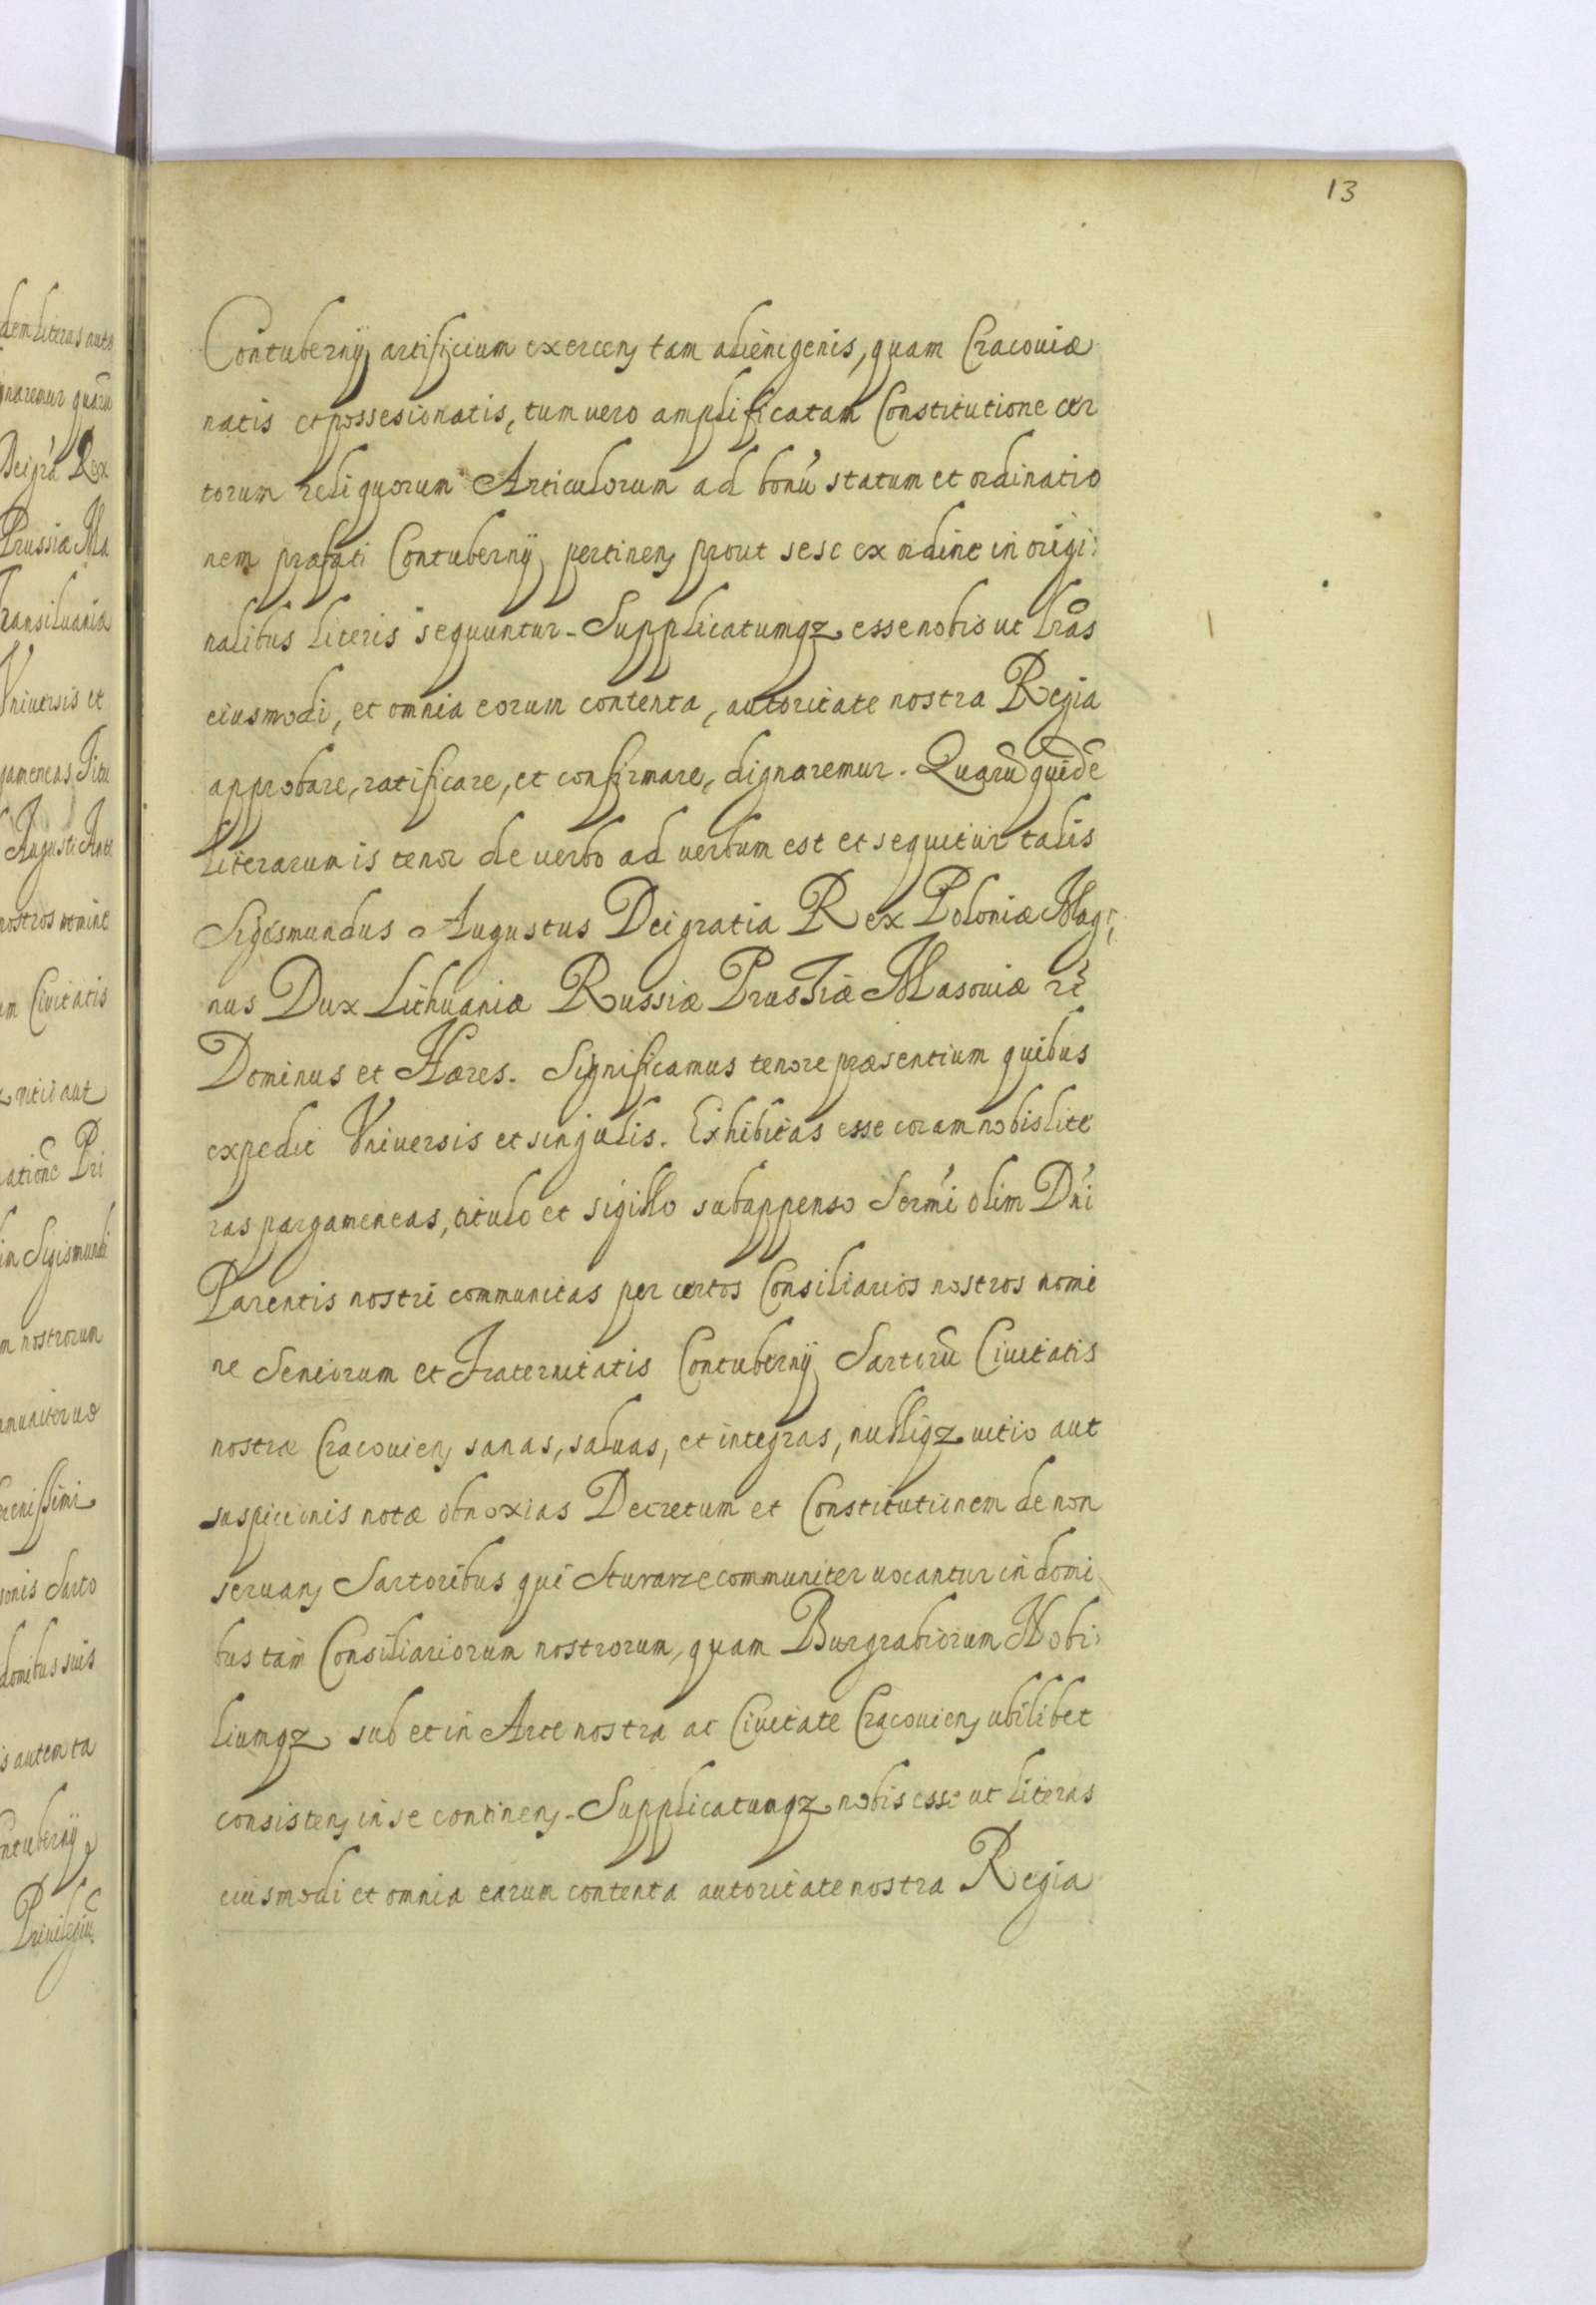 13
Contubernij artificium exercen, tam alienigenis, quam Cracouiæ
natis et possesionatis, tum uero amplificatam Constitutione cer
torum reliquorum Articulorum ad bonū statum et ordinatio
nem præfati Contubernij pertinen, prout sese ex ordine in origi:
nalibus literis sequuntur - Supplicatumqz esse nobis ut lr̃as
eiusmodi, et omnia eorum contenta, autoritate nostra Regia
approbare, ratificare, et confirmare, dignaremur. Quarū quidē
literarum is tenor de uerbo ad uerbum est et sequitur talis
Sigismundus Augustus Dei gratia Rex Poloniæ Mag:
nus Dux Lithuaniæ Russiæ Prussiæ Masouiæ
Dominus et Hæres. Significamus tenore præsentium quibus
expedit Vniuersis et singulis. Exhibitas esse coram nobis lite
ras pargameneas, titulo et sigillo subappenso Serm̃i olim Dñi
Parentis nostri communitas per certos Consiliarios nostros nomi
ne Seniorum et Fraternitatis Contubernij Sartorū Ciuitatis
nostræ Cracouien, sanas, saluas, et integras, nulliqz uitio aut
suspicionis notæ obnoxias Decretum et Constitutionem de non
seruan, Sartoribus qui Sturarze communiter uocantur in domi
bus tam Consiliariorum nostrorum, quam Burgrabiorum Nobi:
liumqz sub et in Arce nostra ac Ciuitate Cracouien, ubilibet
consisten, in se continen, - Supplicatumqz nobis esse ut literas
eiusmodi et omnia earum contenta autoritate nostra Regia